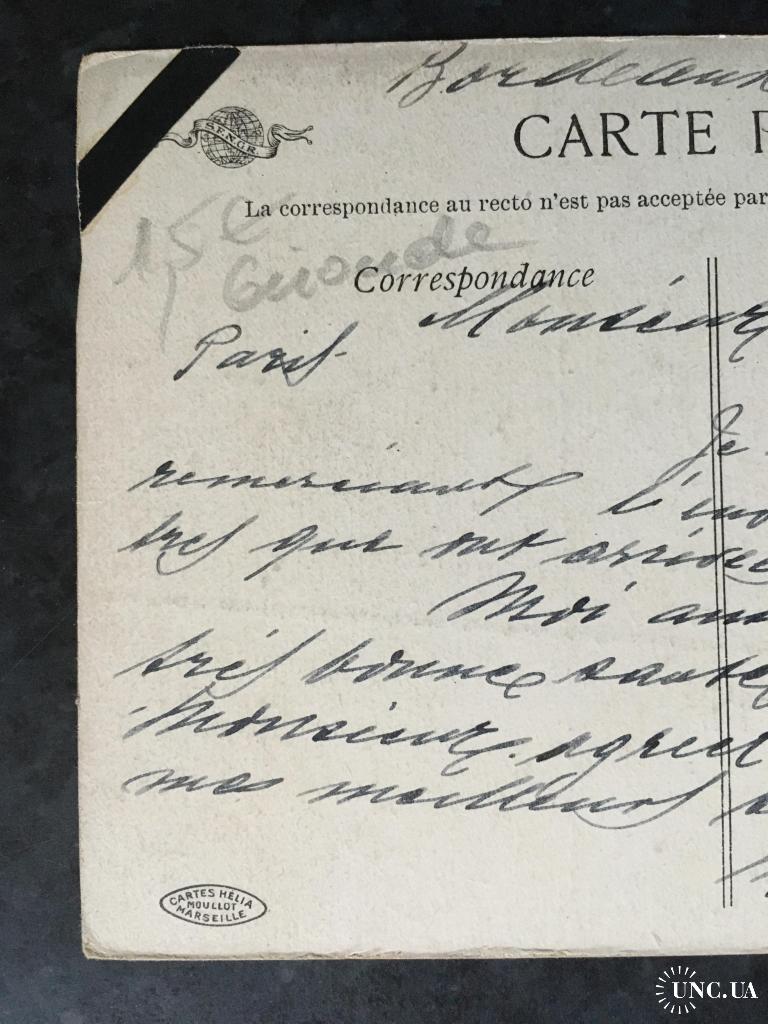 Bordeaux
S.F.N.G.R.
CARTE P
La correspondance au recto n'est pas acceptée par
15€
Gironde
Correspondance
Monsieur
Paris
Je
remerciant l'
tres que ont arrivée
Moi aus
très bonne santé
Monsieur agreet
mes meilleurs
CARTES HÉLIA
MOULLOT
MARSEILLE
UNC.UA